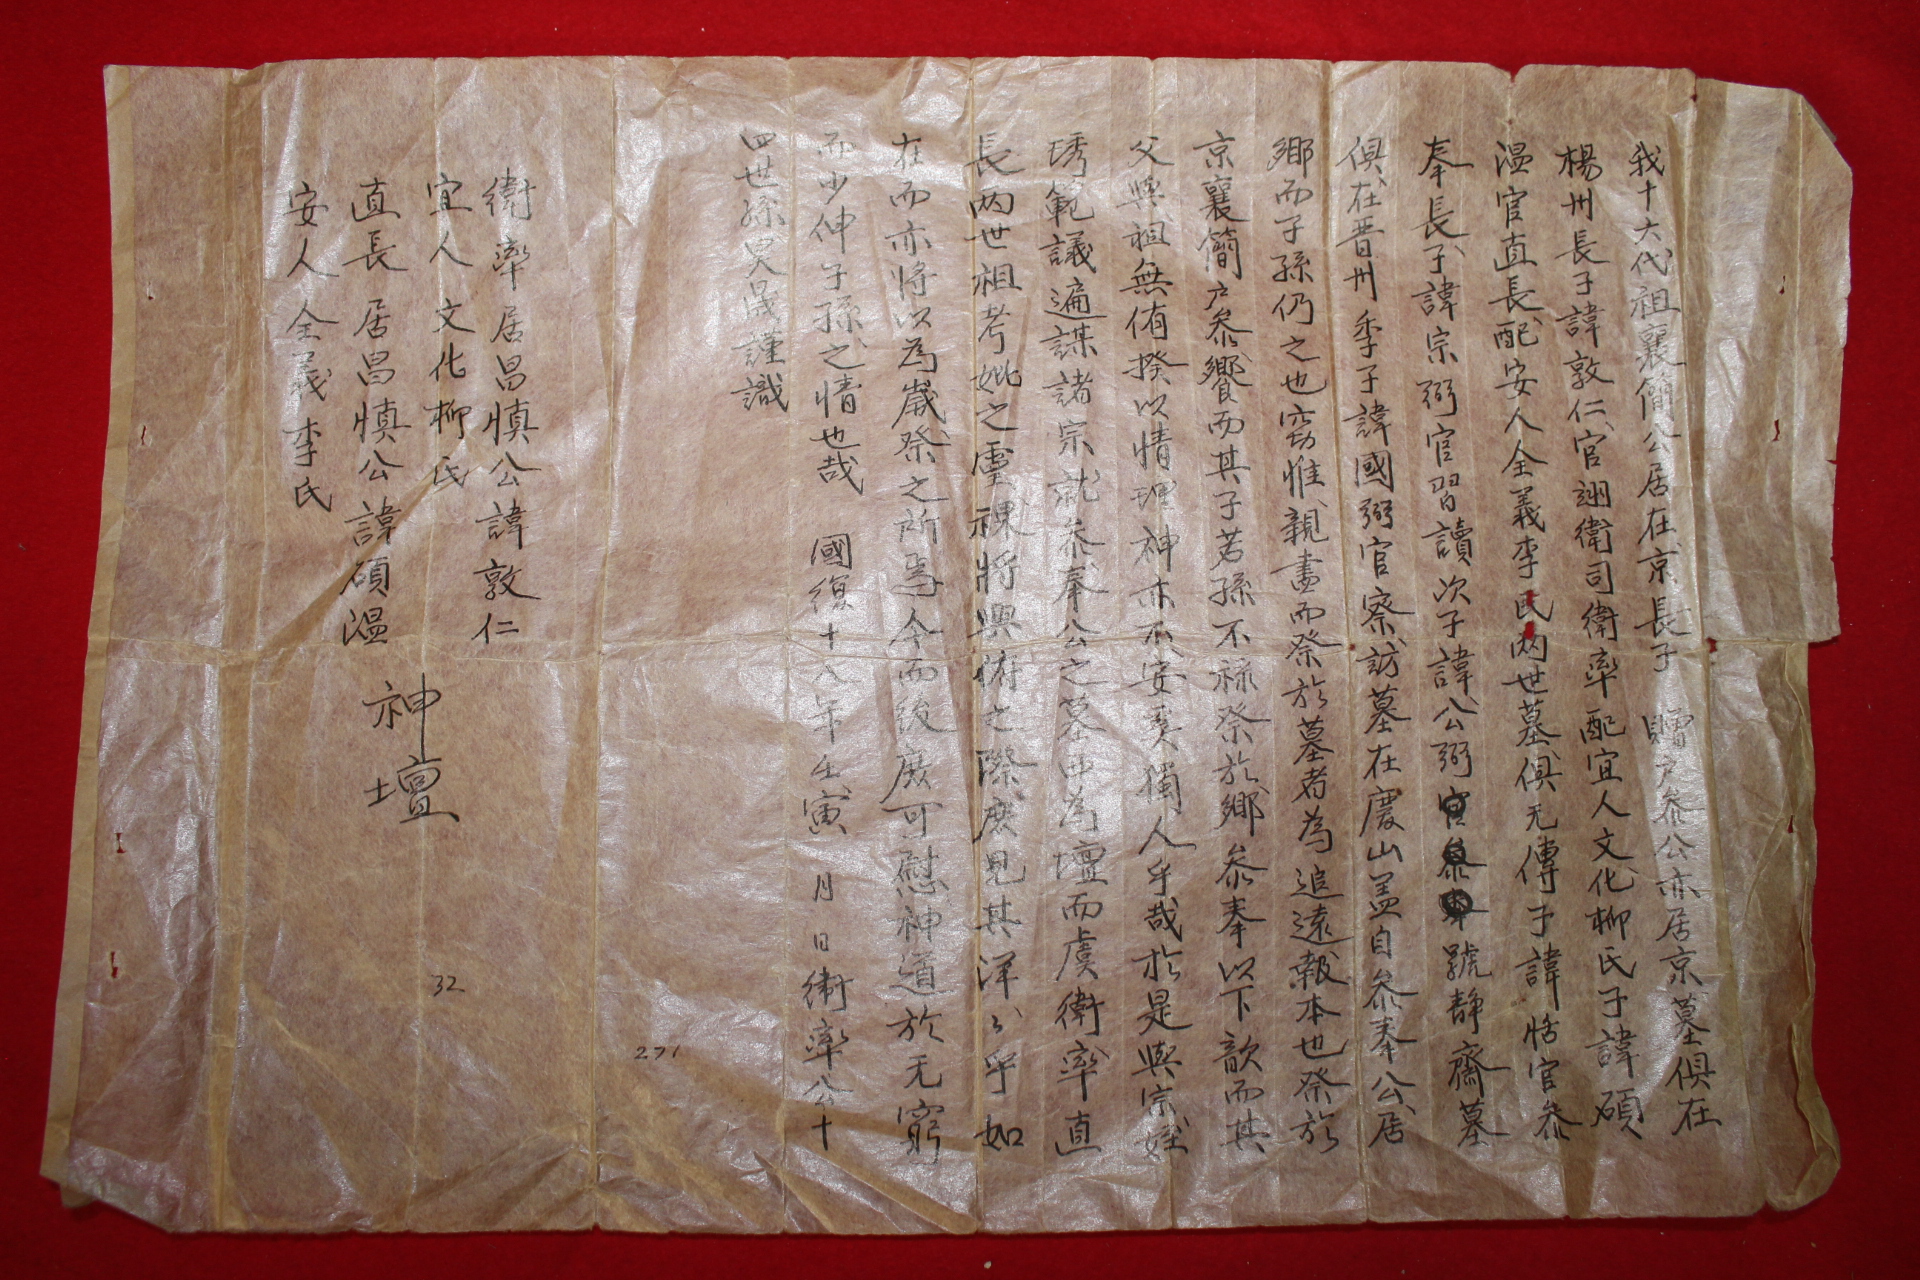 我十六代祖襄簡公居在京長子 贈戶參公亦居京墓俱在
楊州長子諱敦仁官翊衛司衛率配宜人文化柳氏子諱碩
溫官直長配安人全義李氏兩世墓俱无傳子諱恬官參
奉長子諱宗弼官習讀次子諱公弼號靜齋墓
俱在晋州季子諱國弼官察訪墓在慶山盖自參奉公居
鄉而子孫仍之也窃惟親盡而祭於墓者為追遠報本也祭於
京襄簡戶參饗而其子若孫不祿祭於鄉參奉以下歆而其
父與祖無侑揆以情理神亦不安奚獨人乎哉於是與宗姪
琇範議遍謀諸宗就參奉公之墓西為壇而虔衛率直
長兩世祖考妣之靈祼將興俯之際庶見其洋〻乎如
在而亦將以為歲祭之所焉今而後庶可慰神道於无窮
而少伸子孫之情也哉 國復十八年壬寅 月 日衛率公十
四世孫昊晟謹識
衛率居昌慎公諱敦仁
宜人文化柳氏
直長居昌慎公諱碩溫
安人全義李氏
神壇
32
271